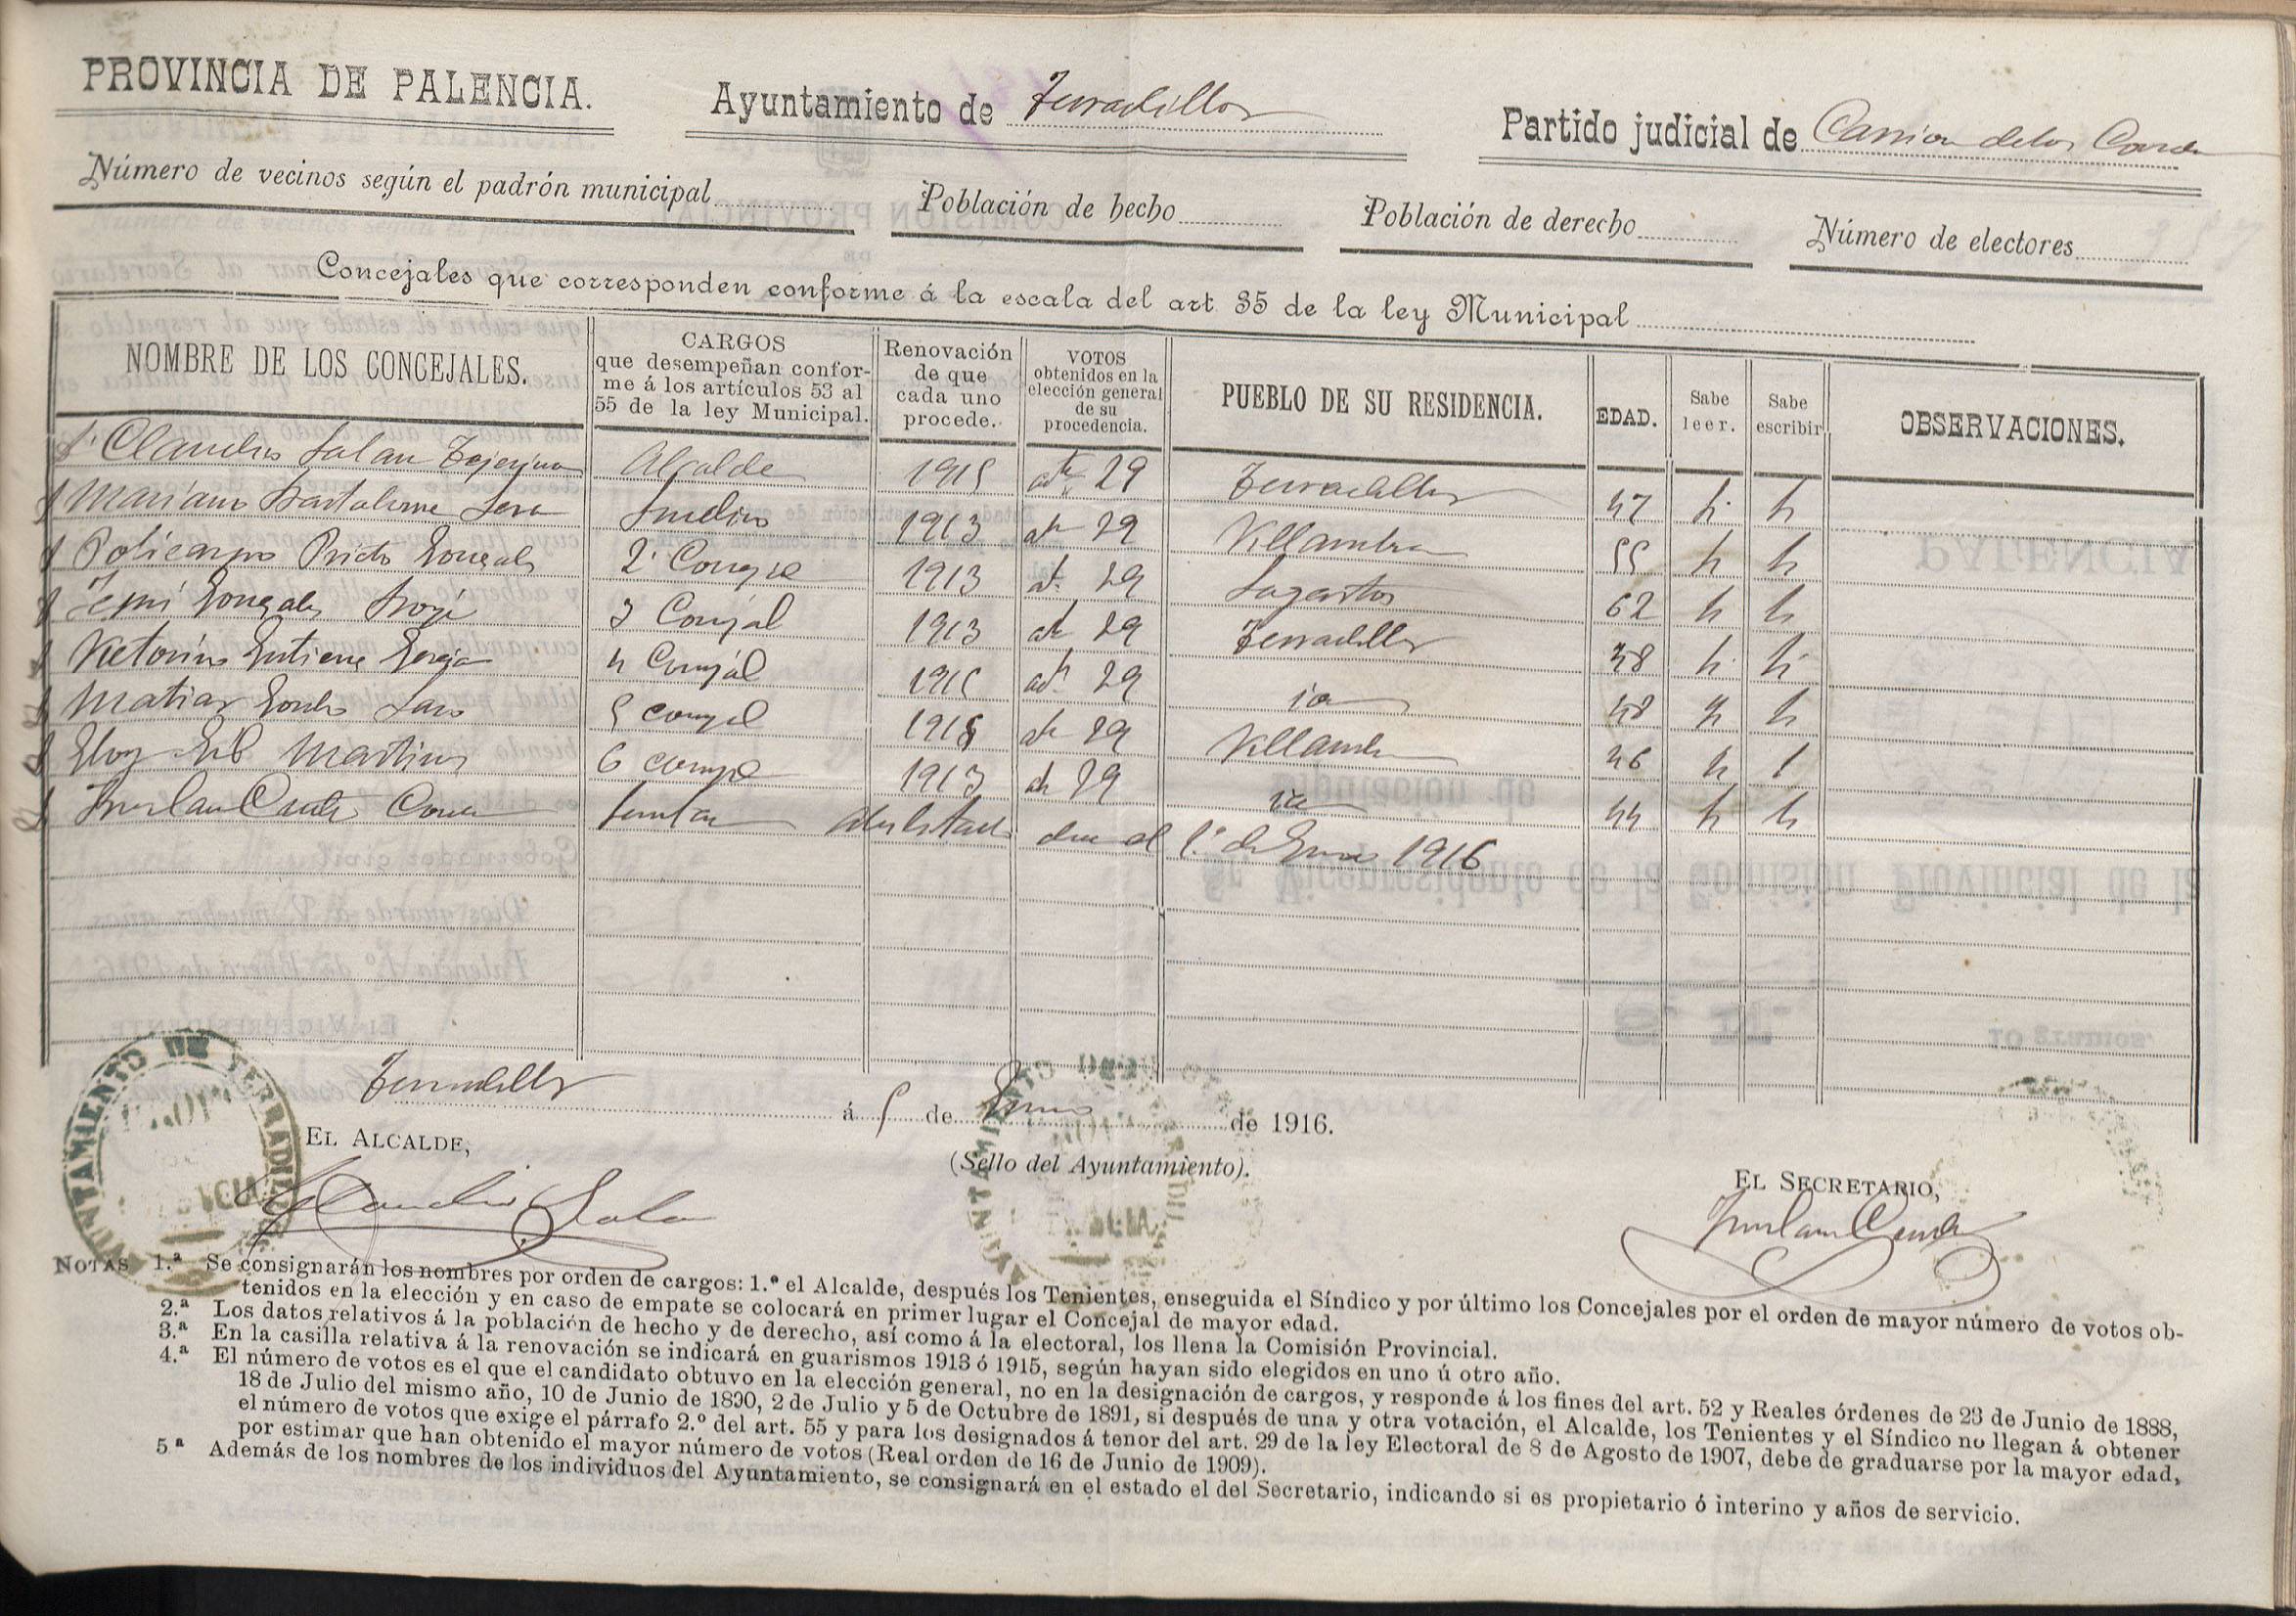 PROVINCIA DE PALENCIA.
Ayuntamiento de Terradillos
Partido judicial de Carrion de los Conde
Número de vecinos según el padrón municipal
Población de hecho
Población de derecho
Número de electores
Concejales que corresponden conforme á la escala del art 35 de la ley Municipal
NOMBRE DE LOS CONCEJALES.
CARGOS
que desempeñan confor-
me á los artículos 53 al
55 de la ley Municipal.
Renovación
de que
cada uno
procede.
VOTOS
obtenidos en la
elección general
de su
procedencia.
PUEBLO DE SU RESIDENCIA.
EDAD.
Sabe
leer.
Sabe
escribir
OBSERVACIONES.
Claudio Salan Tejerina Alcalde 1915 art 29 Terradillos 47
Mariano Bartolome Sindico 1913 art 29 Villambran 55
Policarpo Prieto Gonzalez 2º 1913 art 29 Lagartos 62
Gonzalez 3 Concejal 1913 art 29 Terradillos 38
Victorino Gutierrez 4 Concejal 1915 art 29 id 48
Matias 5 concejal 1915 art 29 Villambr 36
Eloy Gil Martinez 6 1913 art 29 id 44
1º de Enero 1916
Terradillos
á 5 de Enero de 1916.
EL ALCALDE,
(Sello del Ayuntamiento).
EL SECRETARIO,
Claudio Salan
AYUNTAMIENTO DE TERRADILLOS
NOTAS 1.ª Se consignarán los nombres por orden de cargos: 1.º el Alcalde, después los Tenientes, enseguida el Síndico y por último los Concejales por el orden de mayor número de votos ob-
tenidos en la elección y en caso de empate se colocará en primer lugar el Concejal de mayor edad.
2.ª Los datos relativos á la población de hecho y de derecho, así como á la electoral, los llena la Comisión Provincial.
3.ª En la casilla relativa á la renovación se indicará en guarismos 1913 ó 1915, según hayan sido elegidos en uno ú otro año.
4.ª El número de votos es el que el candidato obtuvo en la elección general, no en la designación de cargos, y responde á los fines del art. 52 y Reales órdenes de 23 de Junio de 1888,
18 de Julio del mismo año, 10 de Junio de 1890, 2 de Julio y 5 de Octubre de 1891, si después de una y otra votación, el Alcalde, los Tenientes y el Síndico no llegan á obtener
el número de votos que exige el párrafo 2.º del art. 55 y para los designados á tenor del art. 29 de la ley Electoral de 8 de Agosto de 1907, debe de graduarse por la mayor edad,
por estimar que han obtenido el mayor número de votos (Real orden de 16 de Junio de 1909).
5.ª Además de los nombres de los individuos del Ayuntamiento, se consignará en el estado el del Secretario, indicando si es propietario ó interino y años de servicio.